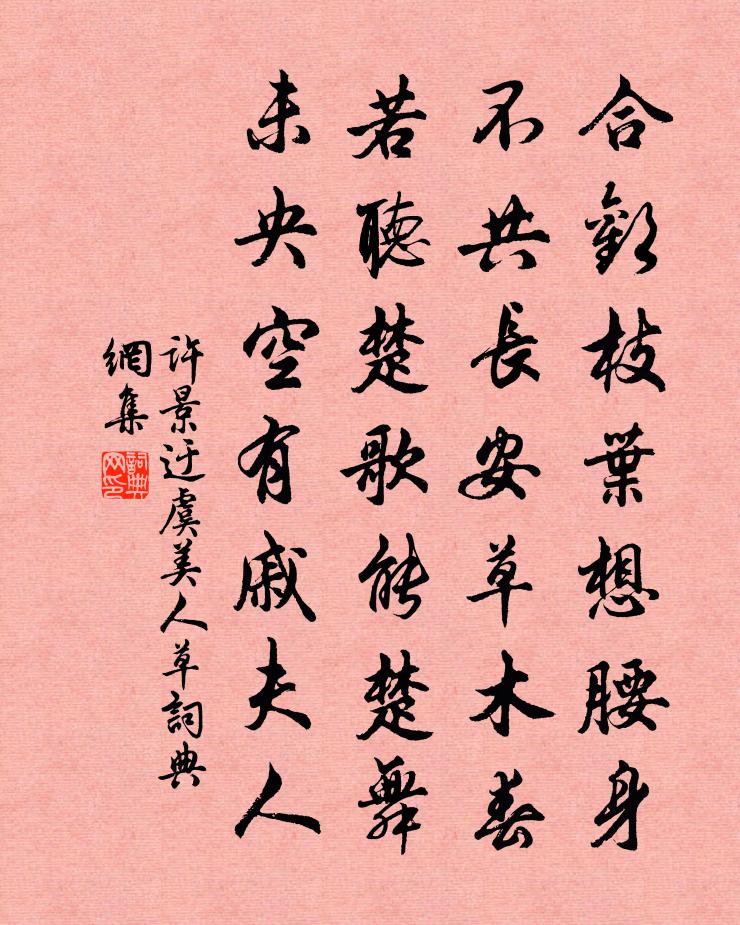 合歡枝葉想腰身
不共長安草木春
若聽楚歌能楚舞
未央空有戚夫人
許景迂虞美人草詞典
網集
詞典網印